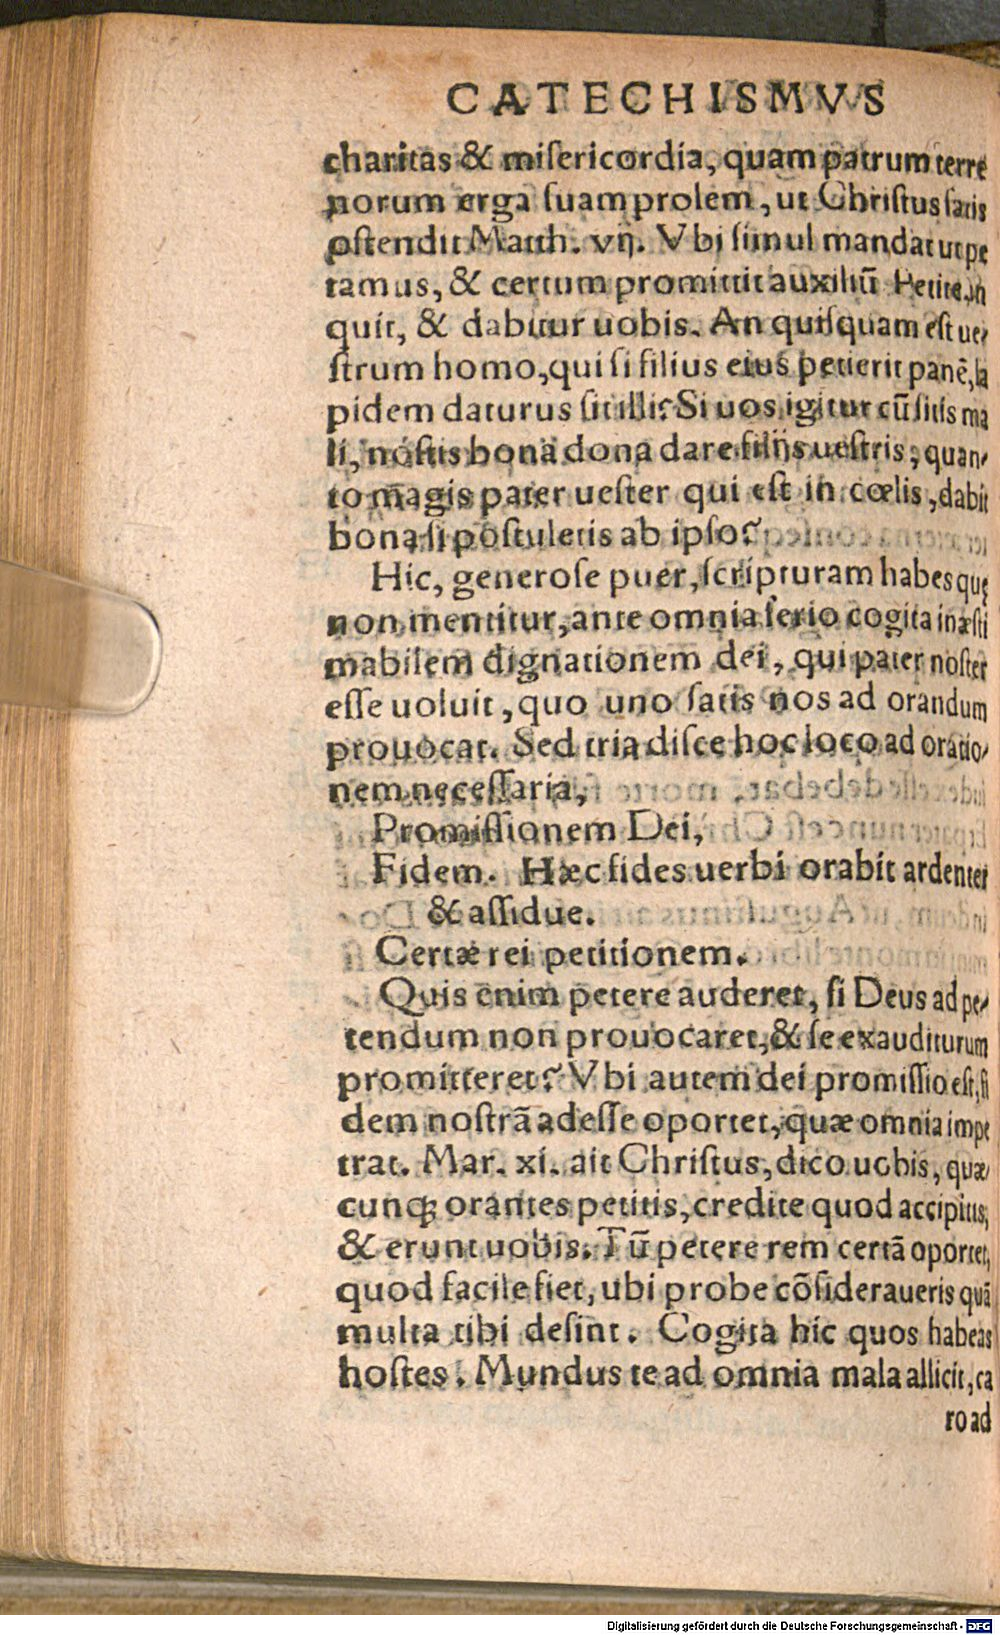 CATECHISMVS
charitas & misericordia, quam patrum terre
norum erga suam prolem, ut Christus satis
ostendit Matth. vij. Vbi simul mandat ut pe
tamus, & certum promittit auxiliũ Petite, in
quit, & dabitur uobis. An quisquam est ue-
strum homo, qui si filius eius petierit panẽ, la
pidem daturus sit illi? Si uos igitur cũ sitis ma
li, nostis bona dona dare filijs uestris, quan-
to magis pater uester qui est in cœlis, dabit
bona si postuletis ab ipso?
Hic, generose puer, scripturam habes quę
non mentitur, ante omnia serio cogita inæsti
mabilem dignationem dei, qui pater noster
esse uoluit, quo uno satis nos ad orandum
prouocat. Sed tria disce hoc loco ad oratio-
nem necessaria,
Promissionem Dei,
Fidem. Hæc fides uerbi orabit ardenter
& assidue.
Certæ rei petitionem.
Quis enim petere auderet, si Deus ad pe-
tendum non prouocaret, & se exauditurum
promitteret? Vbi autem dei promissio est, fi
dem nostrã adesse oportet, quæ omnia impe
trat. Mar. xi. ait Christus, dico uobis, quæ-
cunqꝫ orantes petitis, credite quod accipitis,
& erunt uobis. Tũ petere rem certã oportet,
quod facile fiet, ubi probe cõsideraueris quã
multa tibi desint. Cogita hic quos habeas
hostes. Mundus te ad omnia mala allicit, ca
ro ad
Digitalisierung gefördert durch die Deutsche Forschungsgemeinschaft - DFG